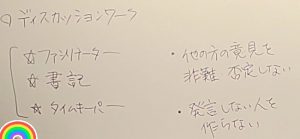 ○ディスカッションワーク
☆ファシリテーター
☆書記
☆タイムキーパー
・他の方の意見を
非難 否定しない
・発言しない人を
作らない